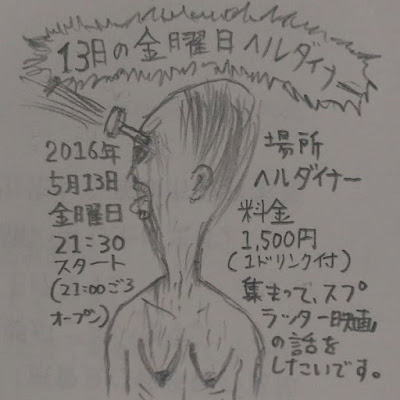 13日の金曜日ヘルダイナー
2016年
5月13日
金曜日
21:30
スタート
(21:00ごろ
オープン)
場所
ヘルダイナー
料金
1,500円
(1ドリンク付)
集まって、スプ
ラッター映画
の話を
したいです。